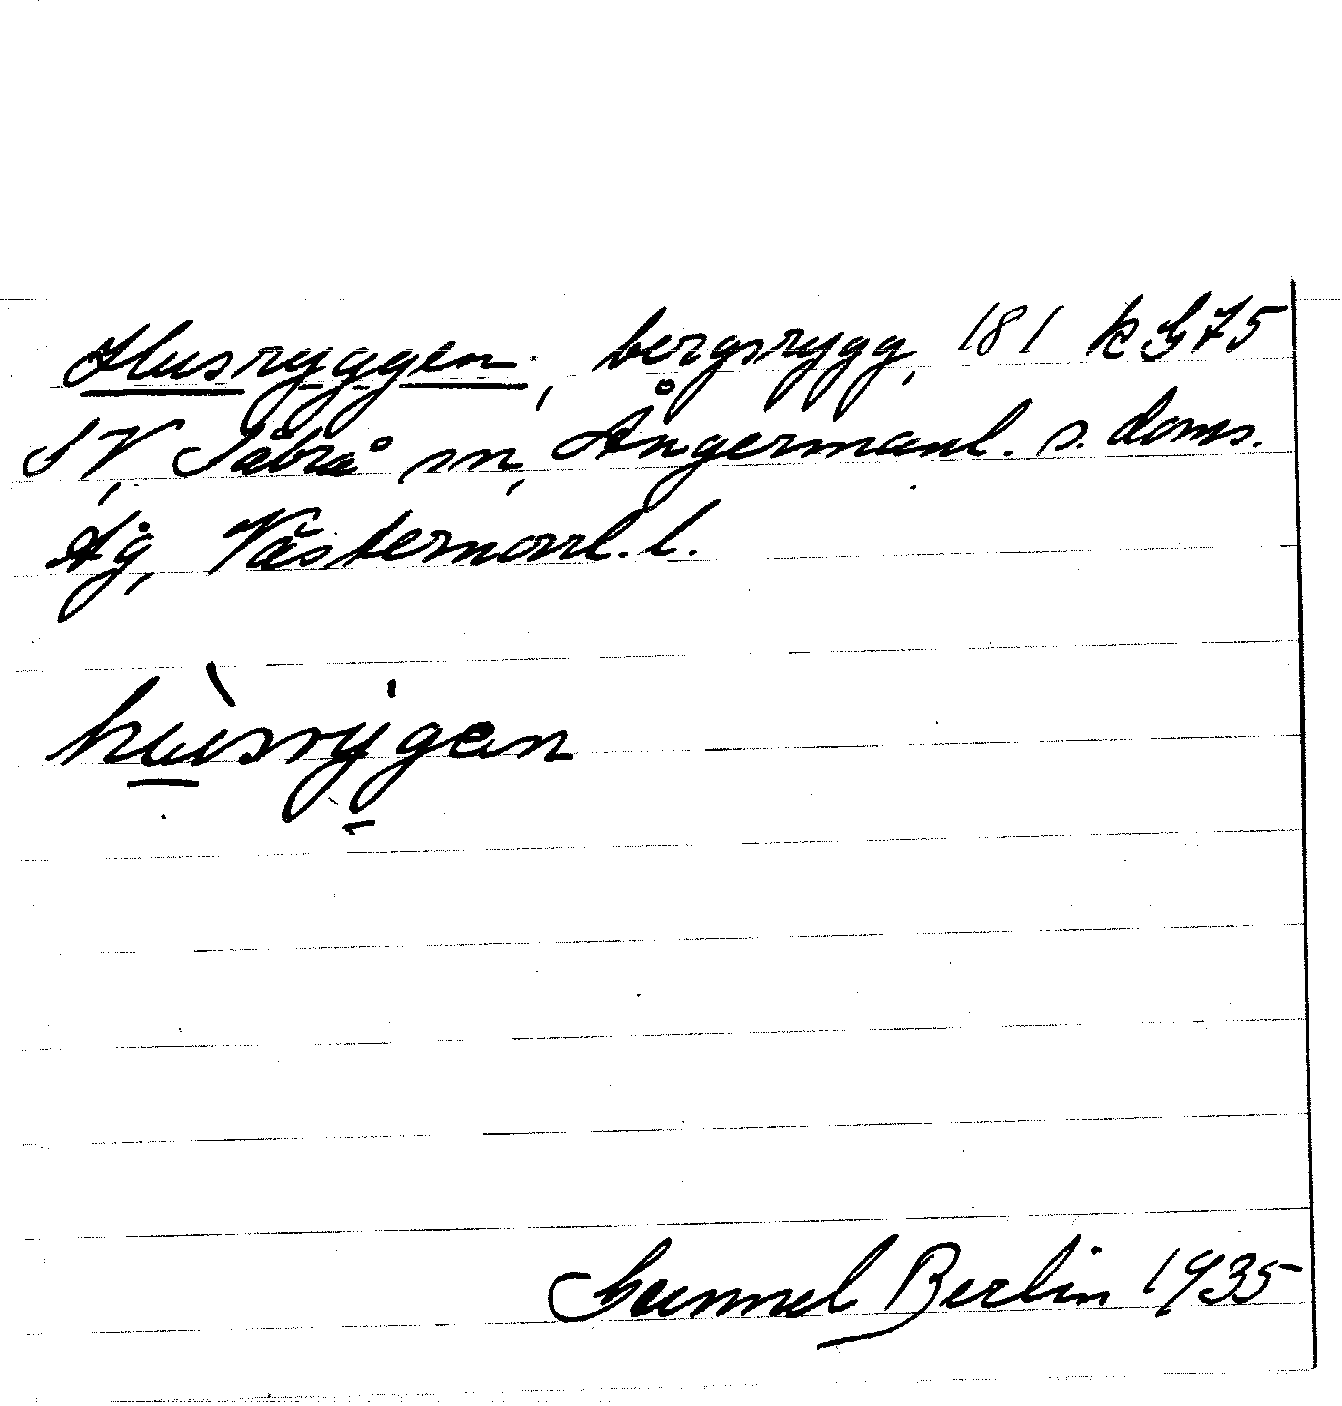 Husryggen, bergsrygg, 181 k G75
SV, Säbrå sn, Ångermanl. s. doms.
dg, Västernorrl. l.
hùsrygen
Gunnel Berlin 1935